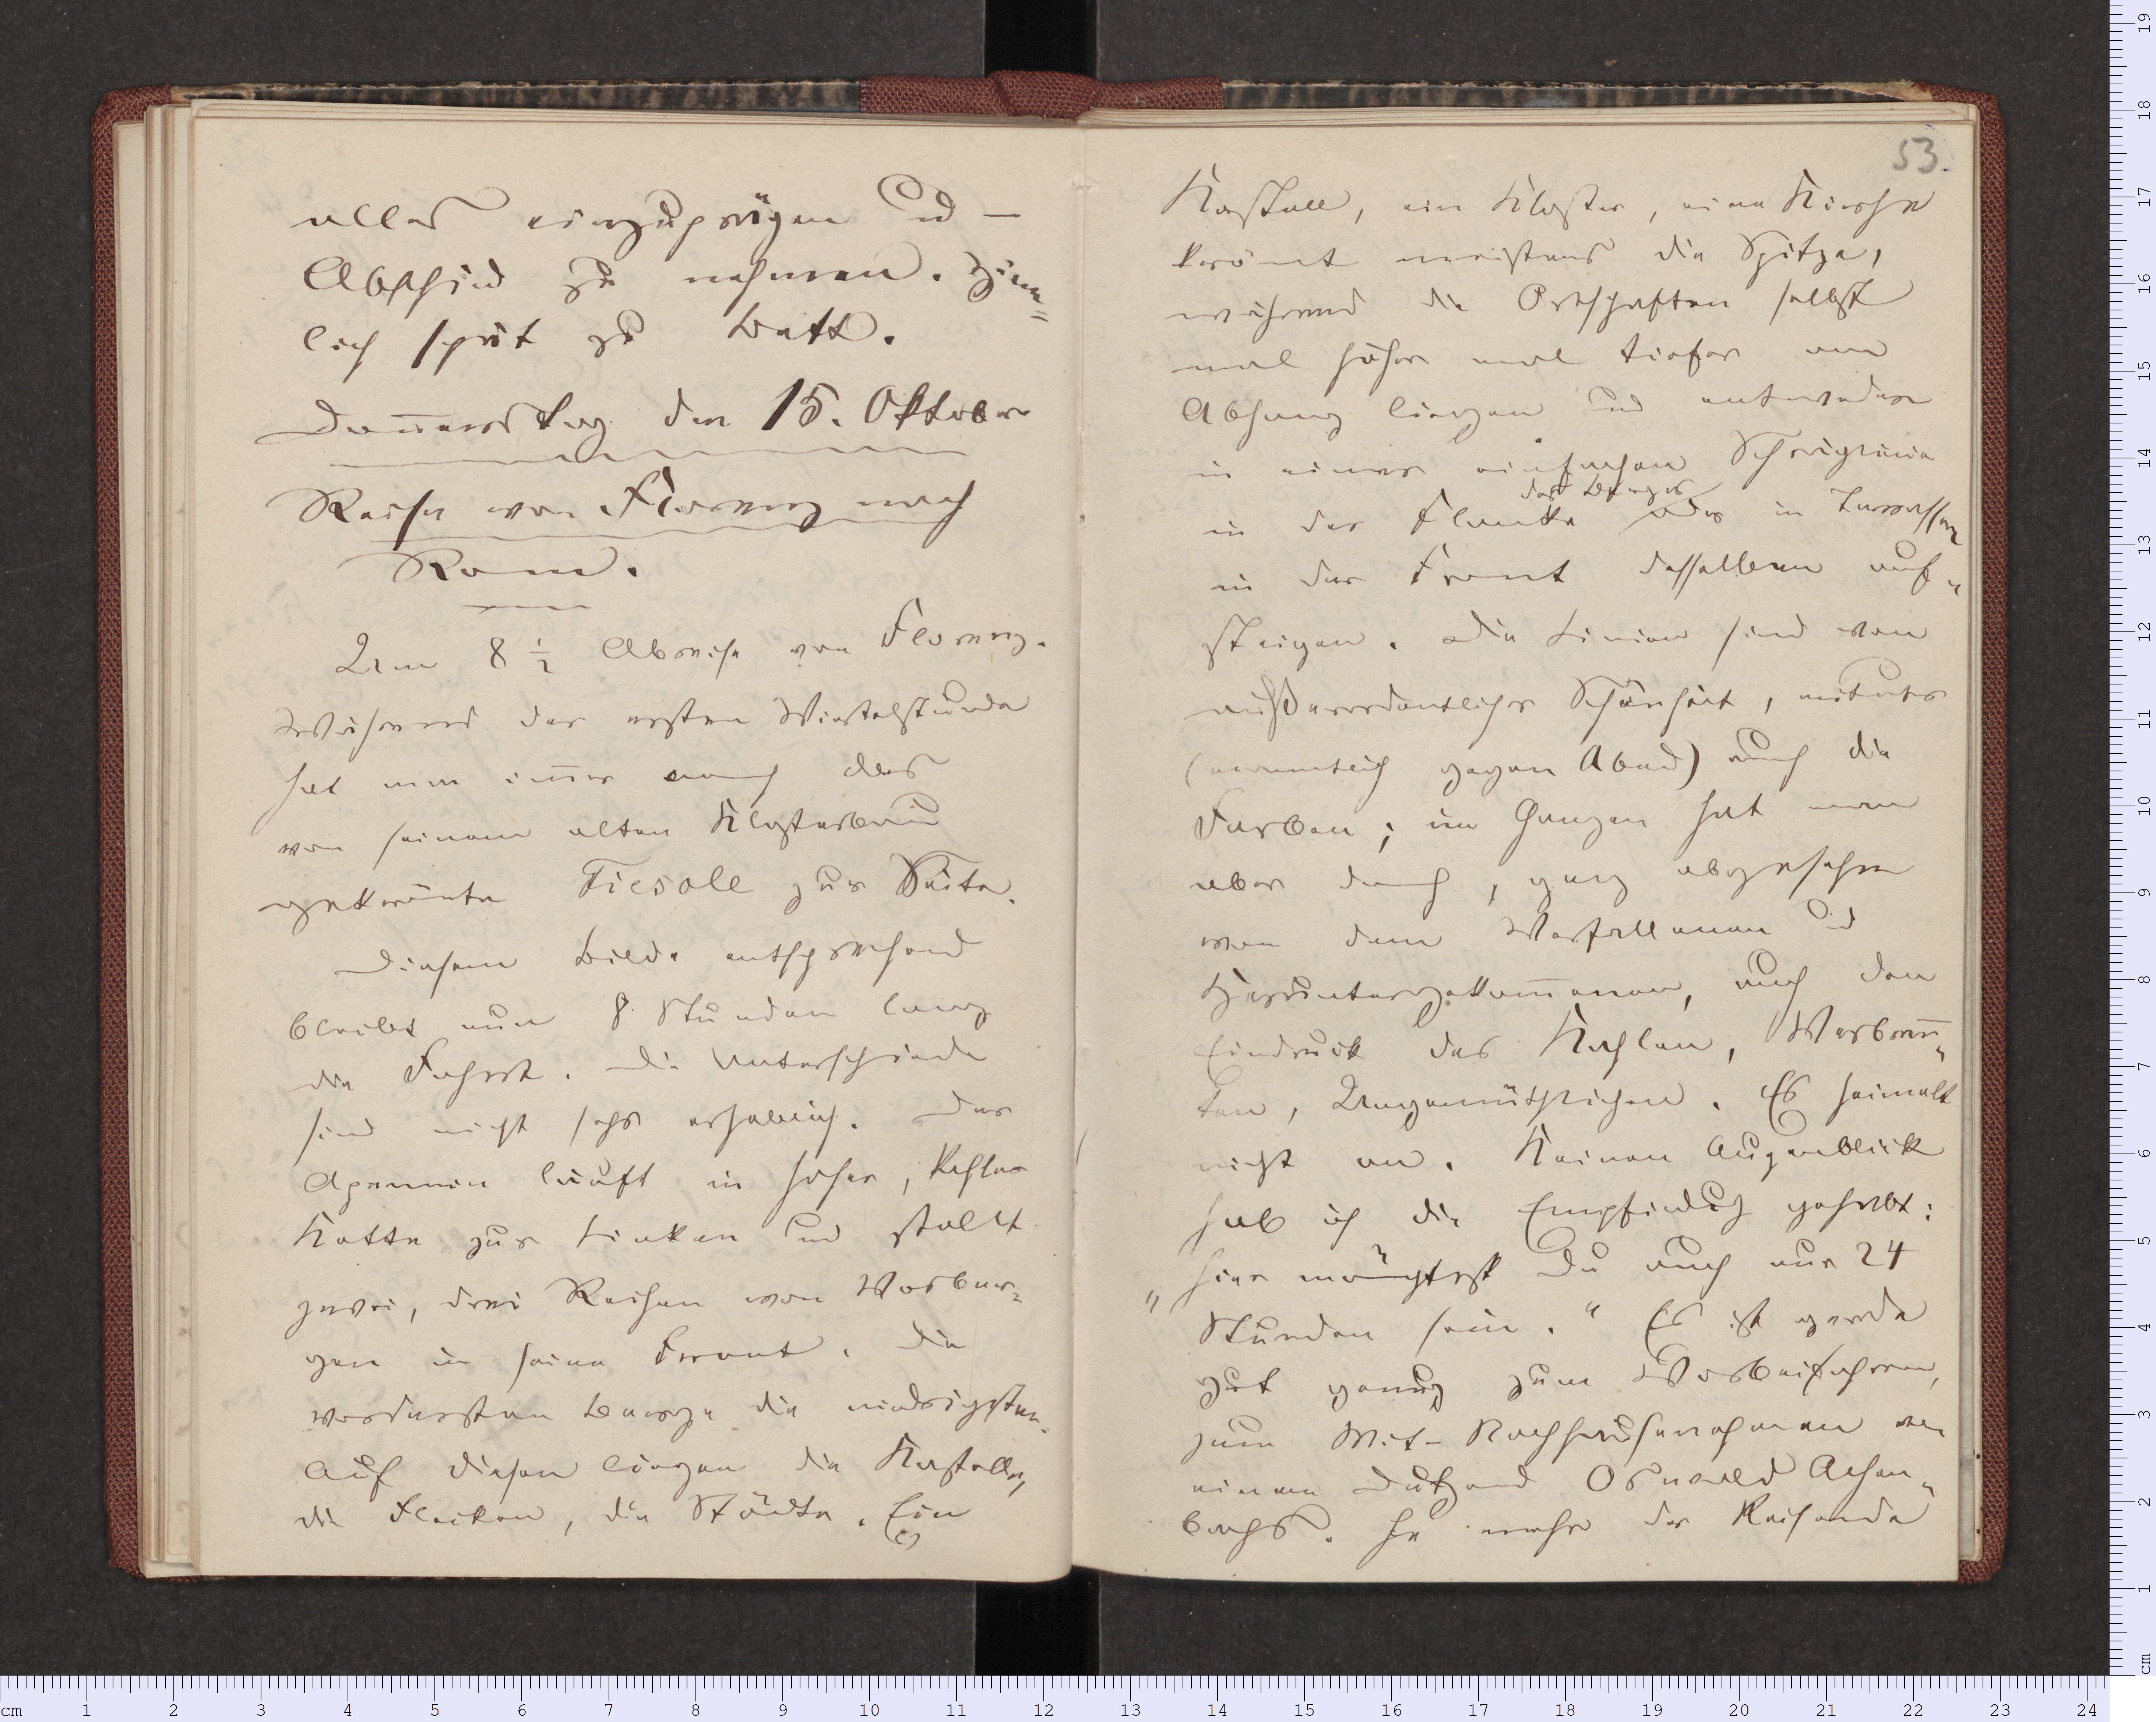 alles einzuprägen und —
Abschied zu nehmen. Ziem=
lich spät zu Bett.
Donnerstag den 15. Oktober
Reise von Florenz nach
Rom.
Um 8 ½ Abreise von Florenz.
Während der ersten Viertelstunde
hat man immer noch das
von seinem alten Klosterbau
gekrönte Fiesole zur Seite.
Diesem Bilde entsprechend
bleibt nun 8 Stunden lang
die Fahrt. Die Unterschiede
sind nicht sehr erheblich. Der
Apennin läuft in hoher, kahler
Kette zur Linken und stellt
zwei, drei Reihen von Vorber-
gen in seine Front. Die
vordersten Berge die niedrigsten.
Auf diesen liegen die Kastelle,
die Flecken, die Städte. Ein
53.
Kastell, ein Kloster, eine Kirche
krönt meistens die Spitze,
während die Ortschaften selbst
mal höher mal tiefer am
Abhang liegen und entweder
in einer einfachen Schräglinie
des Berges
in der Flanke oder in Terrassen
in der Front desselben auf-
steigen. Die Linien sind von
außerordentlicher Schönheit, mitunter
(namentlich gegen Abend) auch die
Farben; im Ganzen hat man
aber doch, ganz abgesehen
von dem Verfallenen und
Heruntergekommenen, auch den
Eindruck des Kahlen, Verbrann-
ten, Ungemüthlichen. Es heimelt
nicht an. Keinen Augenblick
hab ich die Empfindung gehabt:
„hier möchtest Du auch nur 24
Stunden sein.“ Es ist gerade
gut genug zum Vorbeifahren,
zum Mit-Nachhausenehmen von
einem Dutzend Oswald Achen-
bachs. Je mehr der Reisende